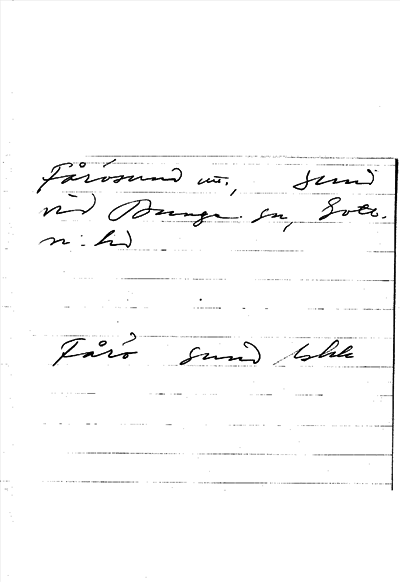 Fårösund m., sund
vid Bunge sn, Gotl.
n: hd
Fårö sund